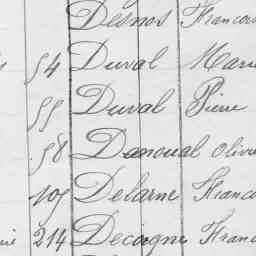 Desnos Francois
54 Duval Marie
55 Duval Pierre
58 Danoual Olivie
105 Delarne Franco
214 Decoigne Franc